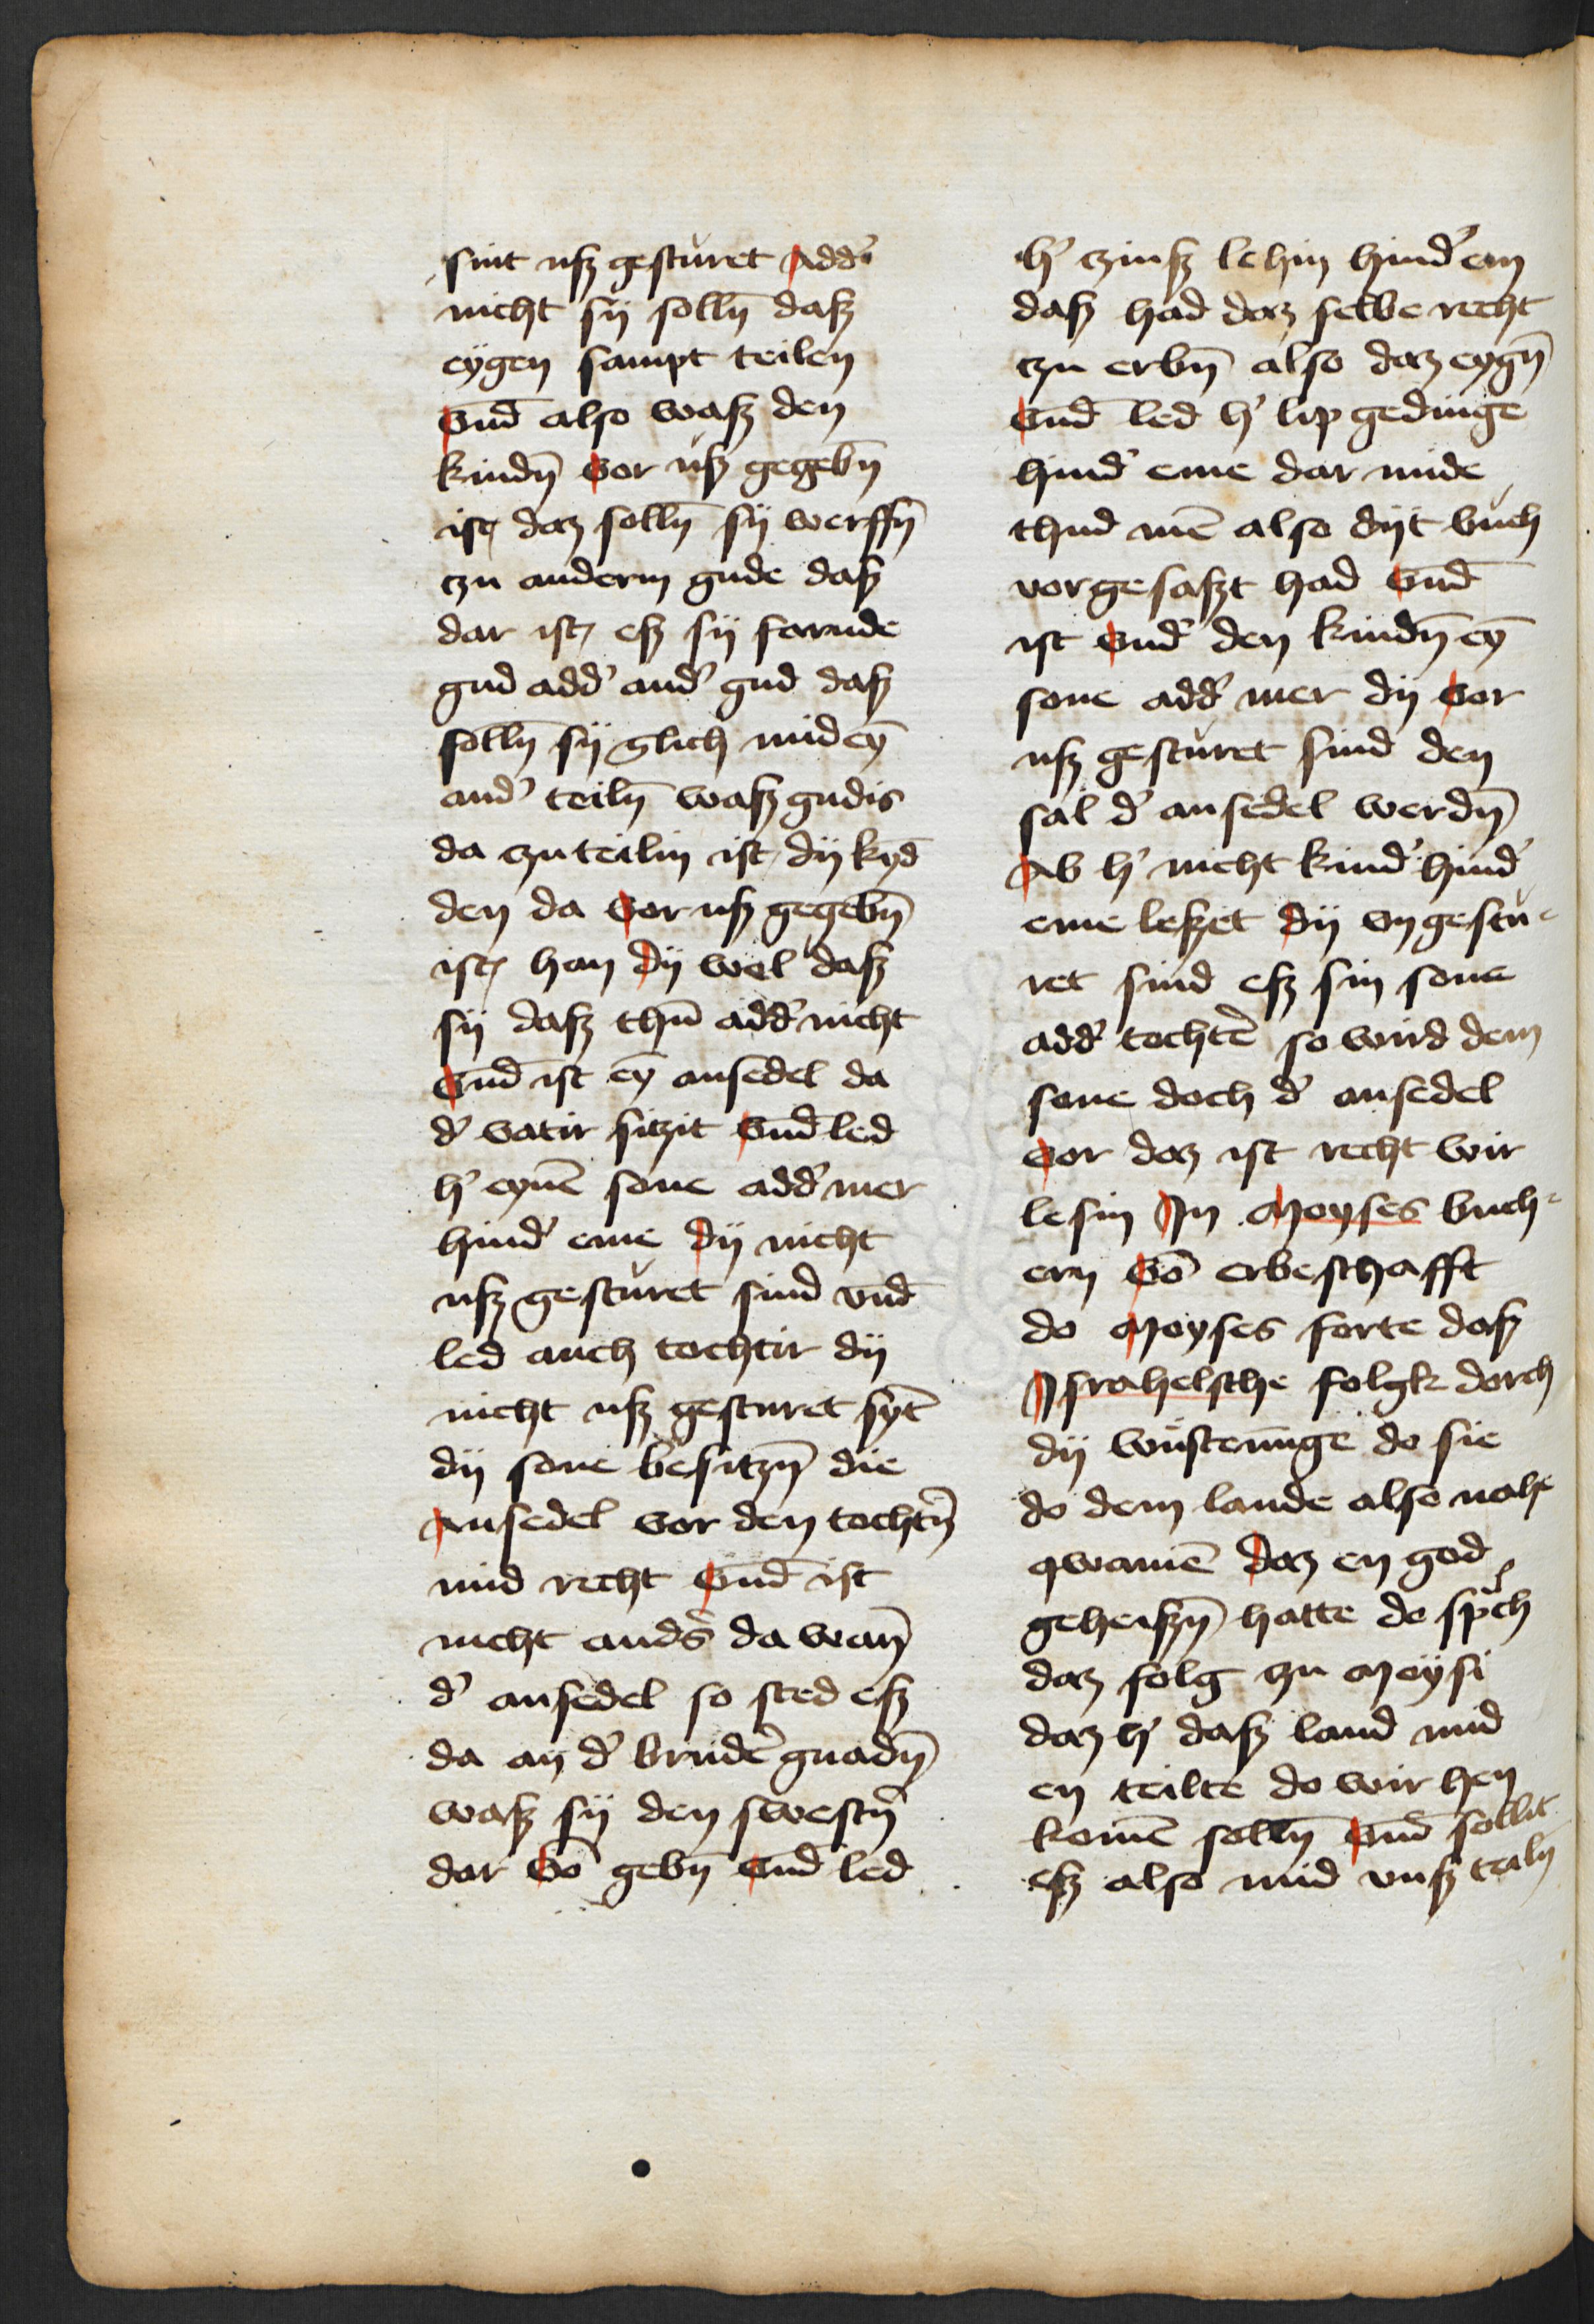 sint uſz gesturet Add'
nicht sÿ solln̄ daſz
eÿgen sampt teilen
Vnd̄ also waſz den
kindn̄ Vor uſz gegebn̄
ist daz solln̄ sÿ werffn̄
czu anderm gude daſz
dar ist eſz sÿ farnde
gud add' and' gud daſz
solln̄ sÿ glich mid eȳ
and' teiln̄ waſz gudis
da czu teilin ist dÿ kȳd
den da Vor uſz gegebn̄
ist han dÿ wel daſz
sÿ daſz thun̄ add' nicht
Vnd̄ ist eȳ ansedel da
d' vatir sitzit Vnd̄ led
h' eynē sone add' mer
hind' eme dÿ nicht
uſz gesturet sind vnd̄
led auch tochtir dÿ
nicht uſz gesturet sȳt
dÿ sone besitzn̄ die
Ansedel vor den tochtn̄
mid recht Vnd̄ ist
nicht anders da wan̄
d' ansedel so sted eſz
da an d' brud' gnadn̄
waſz sÿ den swestn̄
dar Vō gebn̄ Vnd̄ led
h' czinſz lehin hind' em
daſz had daz selbe recht
czu erbn̄ also daz eygn̄
Vnd̄ led h' lip gedinge
hind' eme dar mide
thud mē also dÿt buch
vor gesaſzt had Vnd̄
ist Vnd' den kindn̄ eȳ
sone add' mer dÿ Vor
uſz gesturet sind den
sal d' ansedel werdn̄
Ab h' nicht kind' hind'
eme leſzet dÿ vngestu-
ret sind eſz sin sone
add' tocht' so wird dem
sone doch d' ansedel
Vor daz ist recht wir
lesin In Moyses buch-
ern Vō erbeschafft
do Moyses forte daſz
Israhelsche folgk dorch
dÿ wustenūge do sie
do dem lande also nahe
qwamē Daz en god
geheiſzn̄ hatte do sp'ch
daz folg zu Moÿsi
daz h' daſz land mid
en teilte do wir hen
komē solln̄ Vnd̄ sollit
eſz also mid vnſz teiln̄